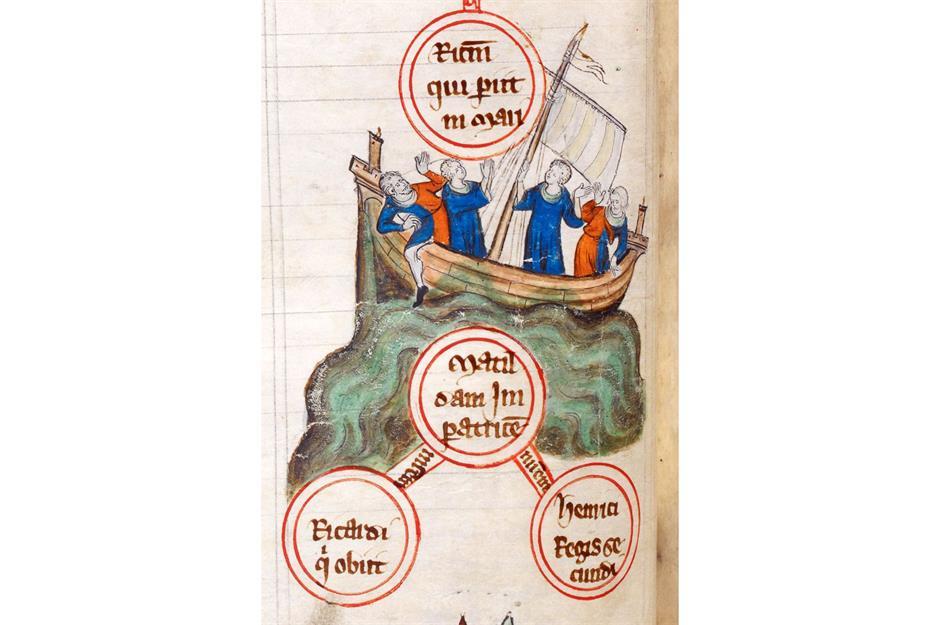 Ricm̄
qui ꝑiit
in mari
Matil
dam Im
ꝑatricē
Ricardi
qⁱ obiit
Henrici
Regis se
cundi